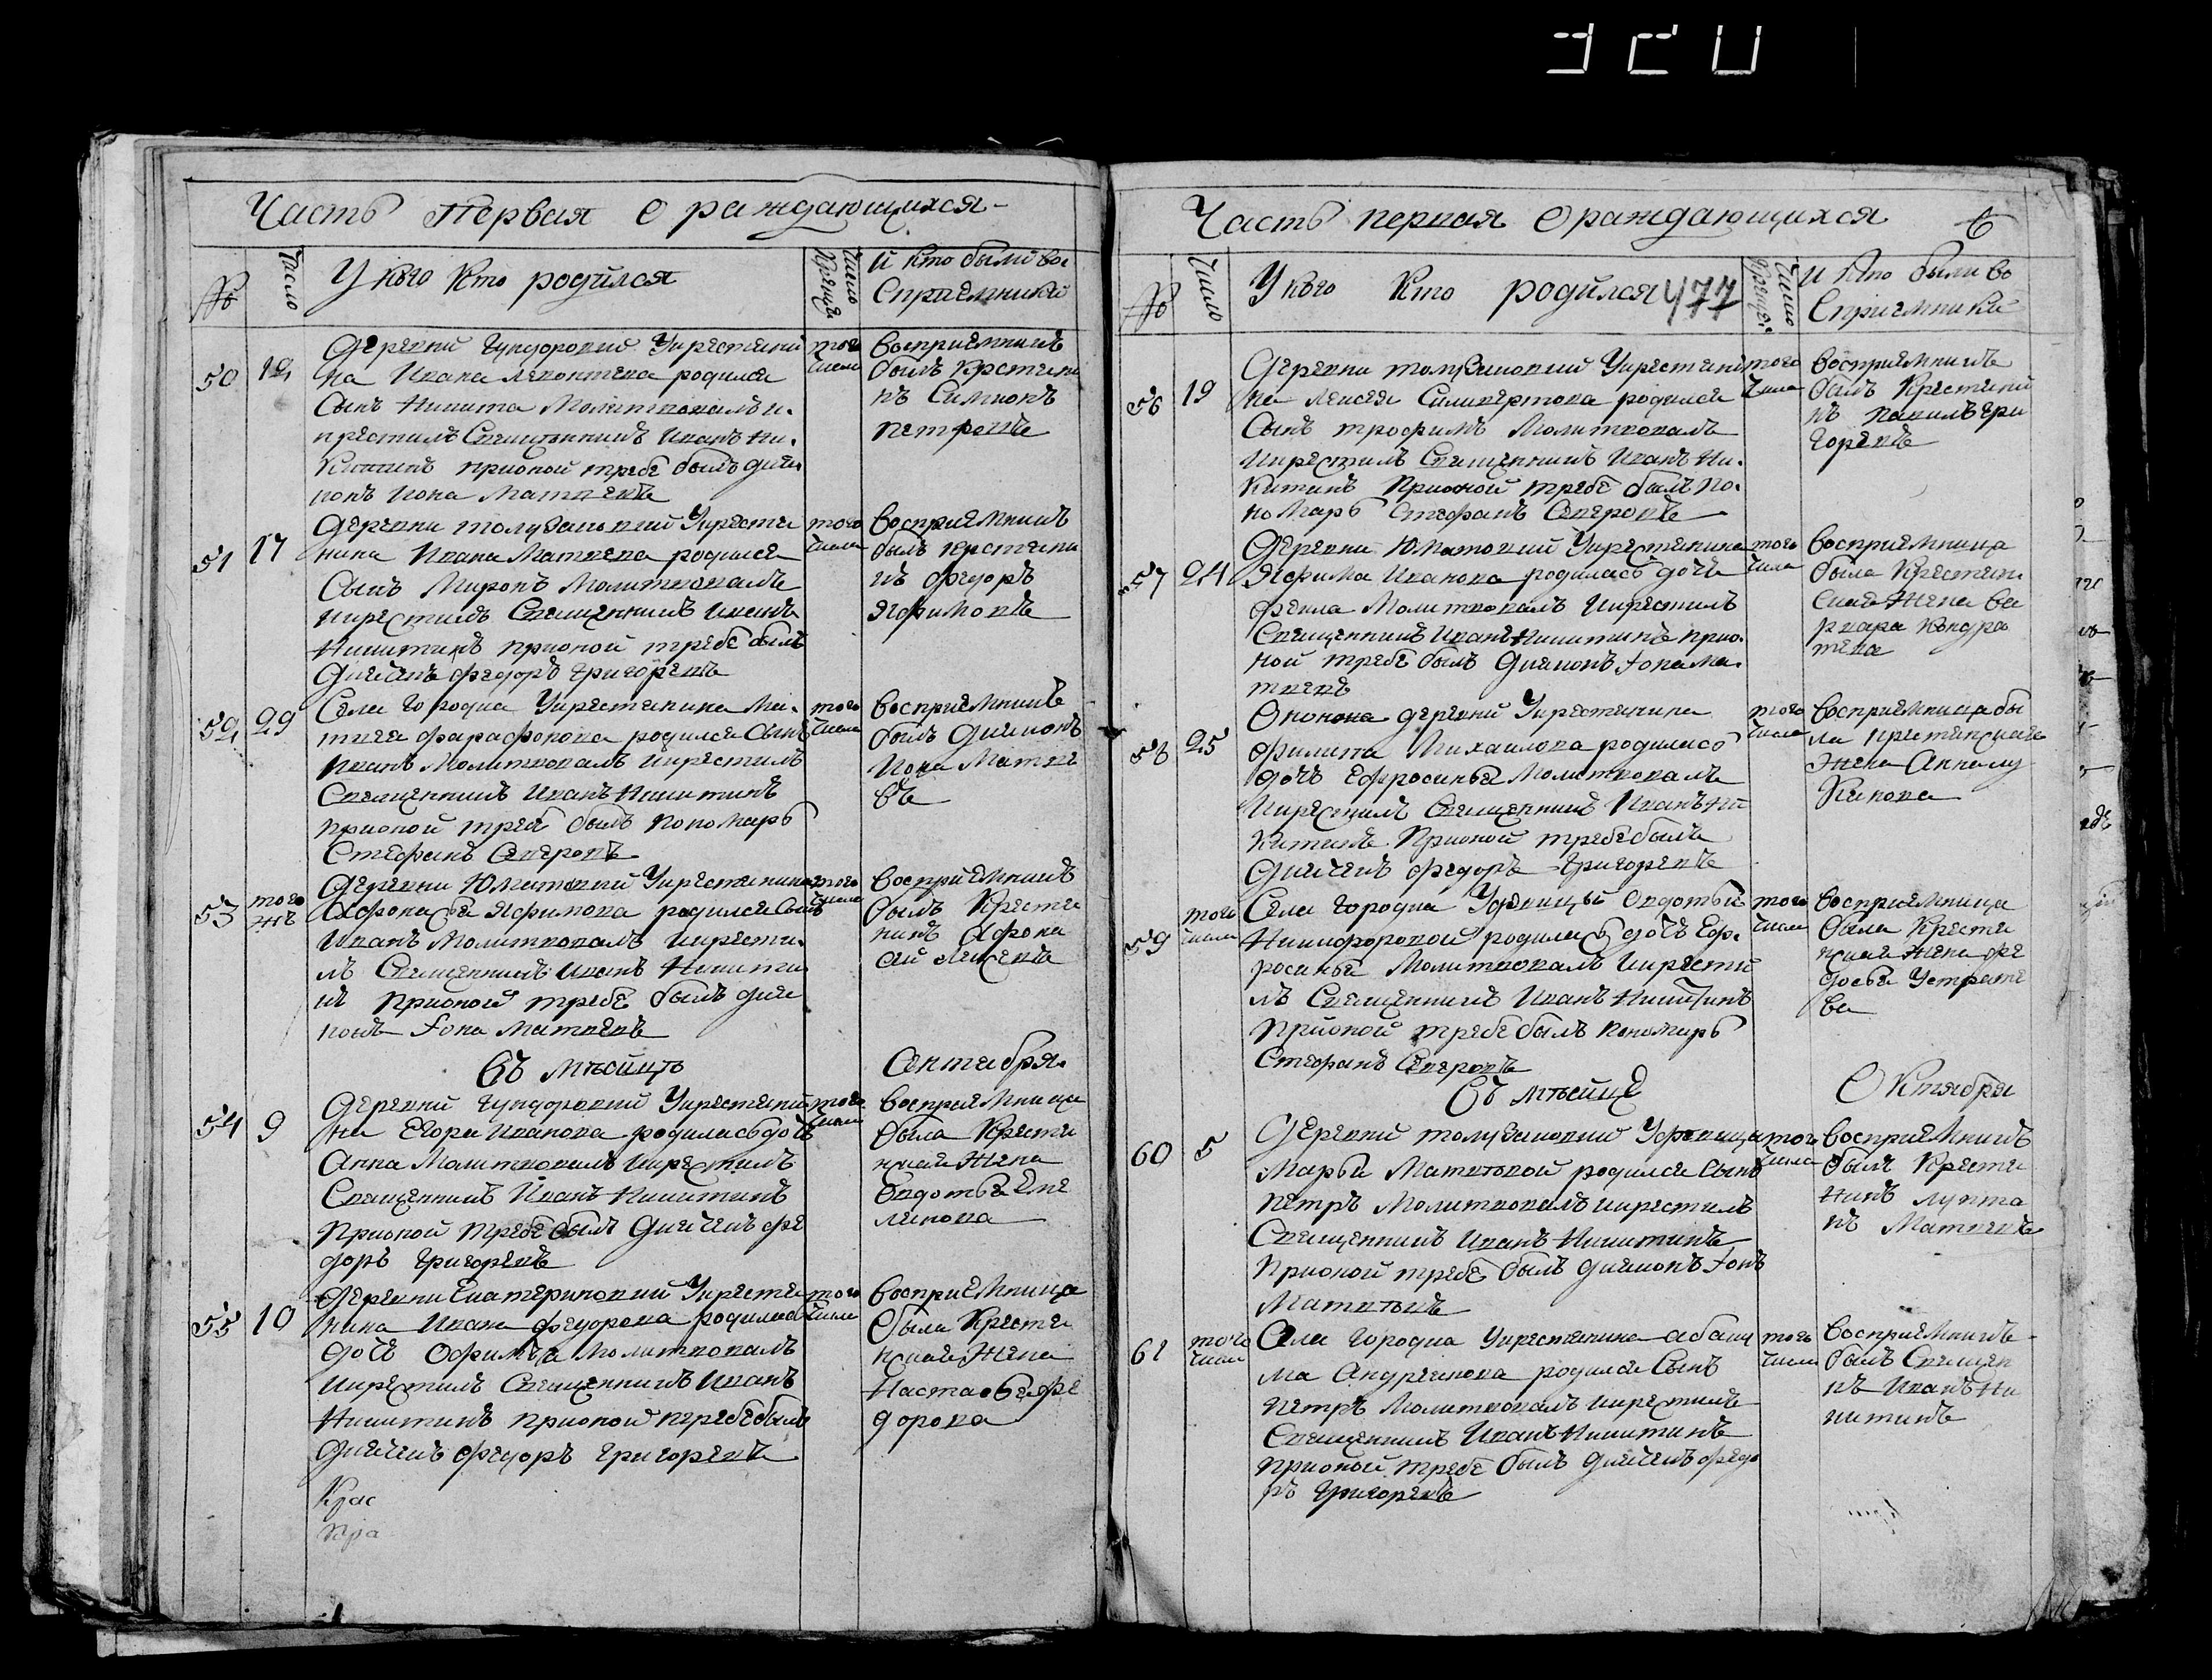 Часть Первая О раждающихся
№
Число
У ково Кто родился
Число Крещѣ
И кто были во
Спраемники
50
12
Деревни Гундоровки Укрестьяни
на Ивана Леконтева родился
Сынъ Никита Молитвовалъ и
крестилъ Священникъ Иванъ Ни
Китинъ прионой требѣ былъ дия
конъ Иона Матвеевъ
того
числа
восприемникъ
былъ Крстьяни
нъ Симионъ
Петровъ
51
17
Деревни толузаковки Укрестья
нина Ивана Матвеева родился
Сынъ Миронъ Молитвовалъ
икрестилъ Священникъ Иванъ
Никитинъ прионой требѣ былъ
Дьячекъ федоръ Григоревъ
того
числа
восприемникъ
былъ крстьяни
нъ федоръ
Яфимовъ
52
29
Села Городка Укрестьянина Ма
твея фарафонова родился Сынъ
Иванъ Молитвовалъ икрестилъ
Священникъ Иванъ Никитинъ
прионой требѣ былъ пономарь
Стефанъ Северовъ
того
числа
восприемникъ
былъ Дияконъ
Иона Матве
въ
53
того
жъ
Деревни Юматовки Укрестьянина
Афонасья Яфимова родился Сынъ
Иванъ Молитвовалъ икрести
лъ Священникъ Иванъ Никити
нъ прионой требѣ былъ дия
конъ Iона Матвеевъ
того
числа
восприемникъ
былъ Крестья
нинъ Афона
сий
Въ мѣсяцѣ
Сентября
54
9
Деревни Гундоровки Укрестьяни
на Егора Иванова родилась дочь
Анна Молитвовалъ икрестилъ
Священникъ Иванъ Никитинъ
Прионой требѣ былъ Дьячекъ фе
доръ Григоревъ
того
числа
восприемница
была Крестья
нская жена
Овдотья Еме
лянова
55
10
Деревни Екатериновки Укрестья
нина Ивана федорова родилась
дочь Офимья Молитвовалъ
икрестилъ Священникъ Иванъ
Никитинъ прионой требѣ былъ
Дьячекъ федоръ Григоревъ
того
числа
восприемница
была Крестья
нская Жена
Настасья фе
дорова
Крас
Кра
Часть первая О раждающихся
6
№
Число
У ково Кто родился
477
Число Крещѣ
И Кто были во
Сприемники
56
19
Деревни толузаковки Укрестьяни
на Силивертова родился
Сынъ трофимъ Молитвовалъ
икрестилъ Священникъ Иванъ Ни
Китинъ Прионой требѣ былъ По
номарь Стефанъ Северовъ
того
числа
восприемникъ
былъ Крестьяни
нъ Павилъ Гри
горевъ
57
24
Деревни Юматовки Укрестьянина
Яфима Иванова родилась дочь
фекла Молитвовалъ икрестилъ
Священникъ Иванъ Никитинъ прио
ной требѣ былъ Дияконъ Iона Ма
твеевъ
того
числа
восприемница
была Крестьян
ская Жена Ва
рвара Кондра
тева
58
25
Оной деревни Укрестьянина
филипа Михаилова родилась
дочь Ефросинья Молитвовалъ
икрестилъ Священникъ Иванъ Ни
Китинъ Прионой требѣ былъ
Дьячекъ федоръ Григоревъ
того
числа
восприемница бы
ла крестьянская
жена Анна лу
Кинова
59
того
числа
Села Городка Удевицы Овдотьи
Никифоровой родилась дочь Еф
росинья Молитвовалъ икрести
лъ Священникъ Иванъ Никитинъ
Прионой требѣ былъ пономарь
Стефанъ Северовъ
того
числа
восприемница
была Крестья
нская жена фе
досья Устрате
ва
Въ мѣсяцѣ
Октября
60
5
Деревни толузаковки Удевицы
Марьи Матвѣевой родился Сынъ
Петръ Молитвовалъ икрестилъ
Священникъ Иванъ Никитинъ
Прионой требѣ былъ Дияконъ Iона
Матвѣевъ
того
числа
восприемникъ
былъ Крестья
нинъ
нъ Матвеевъ
61
того
числа
Села Городка Укрестьянина абаку
ма Андреянова родился Сынъ
Петръ Молитвовалъ икрестилъ
Священникъ Иванъ Никитинъ
прионой требѣ былъ Дьячекъ федо
ръ Григоревъ
того
числа
восприемникъ
былъ Священ
нъ Иванъ Ни
китинъ